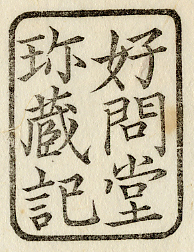 好問堂
珎蔵記